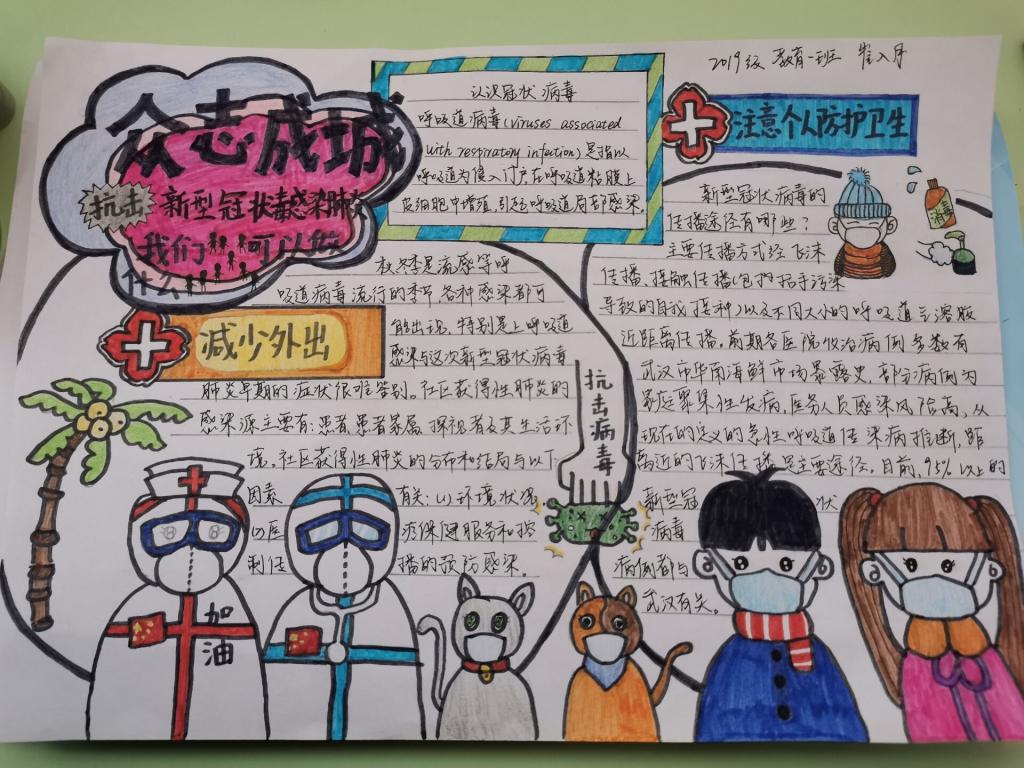 众志成城
抗击
新型冠状毒感染肺炎
我们可以做
什么
认识冠状病毒
呼吸道病毒(viruses associated
with respiratory infection)是指以
呼吸道为侵入门户,在呼吸道粘膜上
皮细胞中增殖,引起呼吸道局部感染,
2019级 教育一班
注意个人防护卫生
新型冠状病毒的
传播途径有哪些?
主要传播方式经飞沫
传播、接触传播(包括手污染
导致的自我接种)以及不同大小的呼吸道气溶胶
近距离传播。前期各医院收治病例多数有
武汉市华南海鲜市场暴露史,部分病例为
家庭聚集性发病,医务人员感染风险高,从
现在的定义的急性呼吸道传染病推断,距
离近的飞沫传播是主要途径。目前,95%以上的
新型冠状
病毒
病例都与
武汉有关。
消毒
减少外出
秋冬季是流感等呼
吸道病毒流行的季节,各种感染都可
能出现,特别是上呼吸道
感染与这次新型冠状病毒
肺炎早期的症状很难鉴别。社区获得性肺炎的
感染源主要有:患者,患者家属,探视者及其生活环
境。社区获得性肺炎的分布和结局与以下
因素有关:(1)环境状况
(2)医疗保健服务和控
制传播的预防感染。
抗击病毒
加油